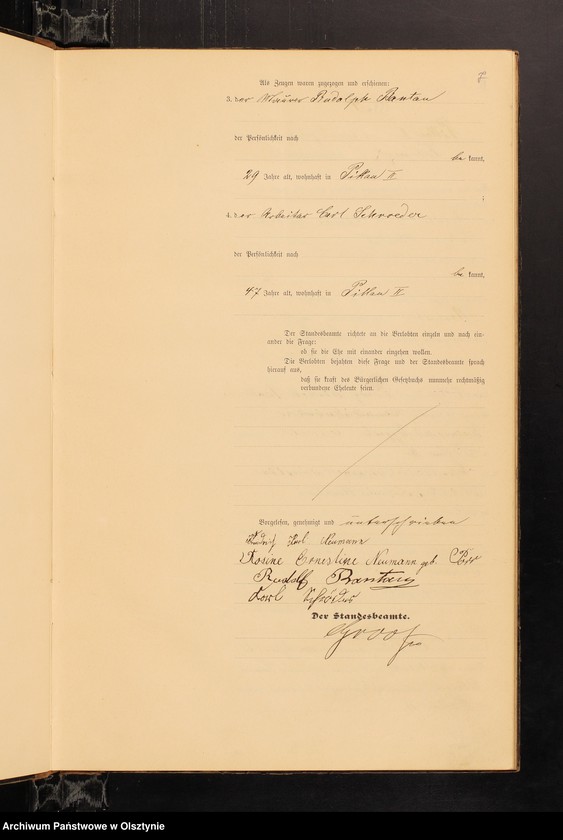 Als Zeugen waren zugezogen und erschienen:
3. der Maurer Rudolph Rantau
der Persönlichkeit nach
be kannt,
29 Jahre alt, wohnhaft in Pillau II
4. der Arbeiter Carl Schroeder
der Persönlichkeit nach
be kannt,
47 Jahre alt, wohnhaft in Pillau II
Der Standesbeamte richtete an die Verlobten einzeln und nach ein-
ander die Frage:
ob sie die Ehe mit einander eingehen wollen.
Die Verlobten bejahten diese Frage und der Standesbeamte sprach
hierauf aus,
daß sie kraft des Bürgerlichen Gesetzbuchs nunmehr rechtmäßig
verbundene Eheleute seien.
Vorgelesen, genehmigt und unterschrieben
Karl Neumann
Rosine Ernestine Neumann geb.
Rudolf Rantau
Karl Schröder
Der Standesbeamte.
Archiwum Państwowe w Olsztynie